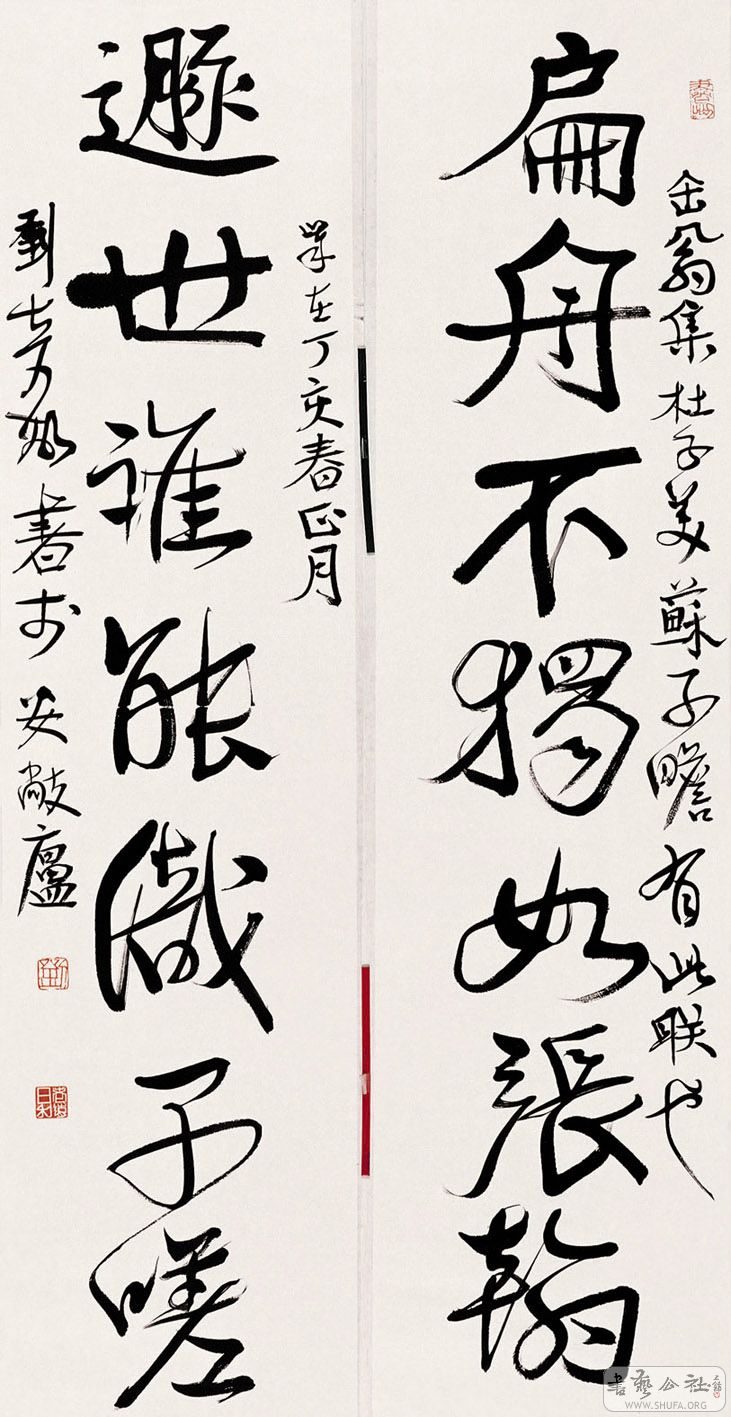 缶翁集杜子美蘇子瞻有此联也
扁舟不獨如張翰
歲在丁亥春正月
遯世誰能識子嗟
劉書於安敞廬
書藝公社
WWW.SHUFA.ORG